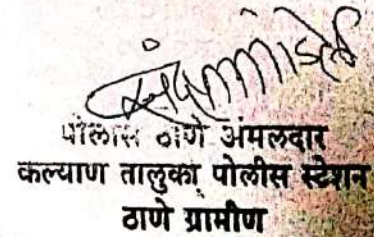 पोलीस ठाणे अंमलदार
कल्याण तालुका पोलीस स्टेशन
ठाणे ग्रामीण